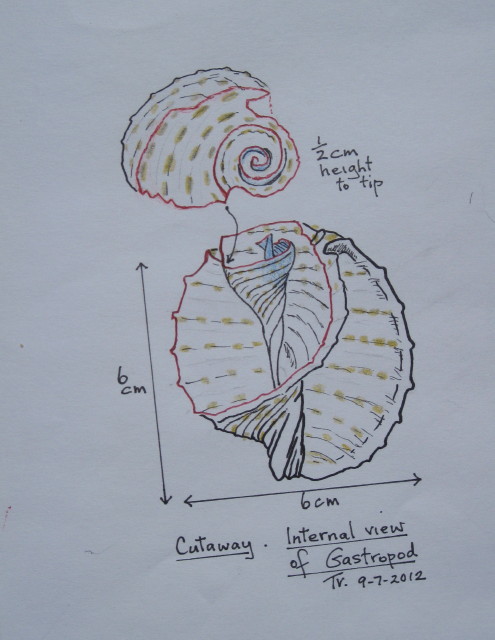 ½ cm
height
to tip
6
cm
6cm
Cutaway. Internal view
of Gastropod
Tr. 9-7-2012